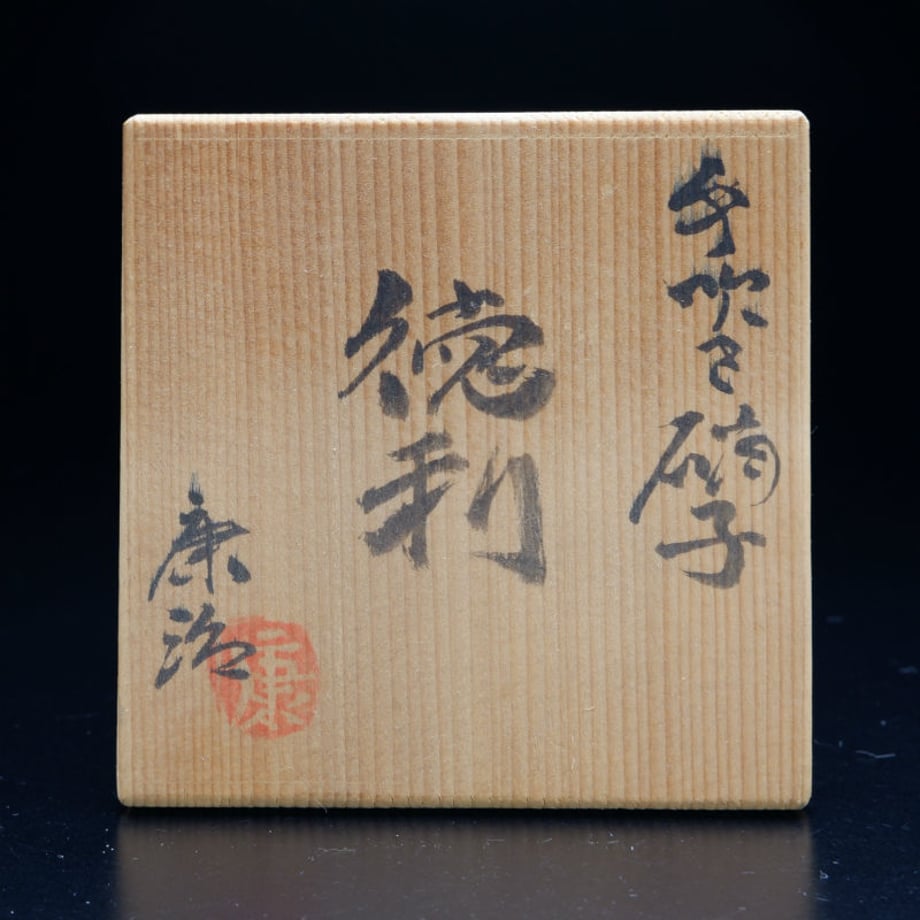 手吹き硝子
徳利
康治
康